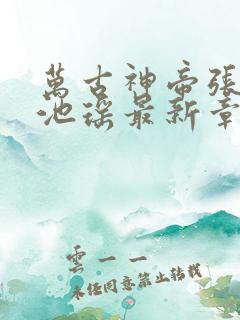 萬古神帝張
池瑤最新章
雲一一
未经同意禁止转载